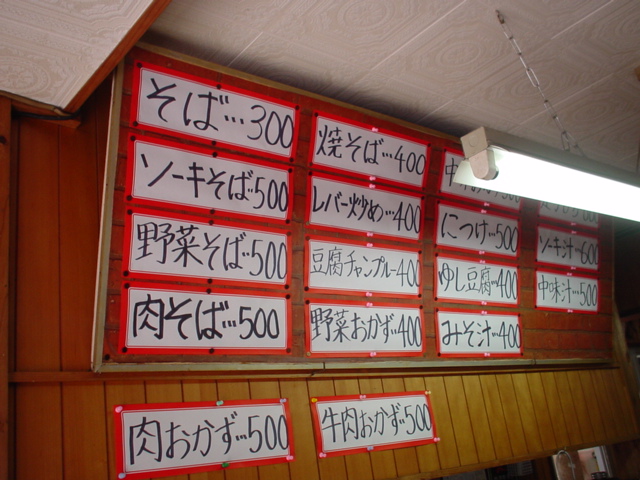 そば…300
ソーキそば…500
野菜そば…500
肉そば…500
焼そば…400
レバー炒め…400
豆腐チャンプルー400
野菜おかず…400
につけ…500
ゆし豆腐…400
みそ汁…400
ソーキ汁…600
中味汁…500
肉おかず…500
牛肉おかず…500